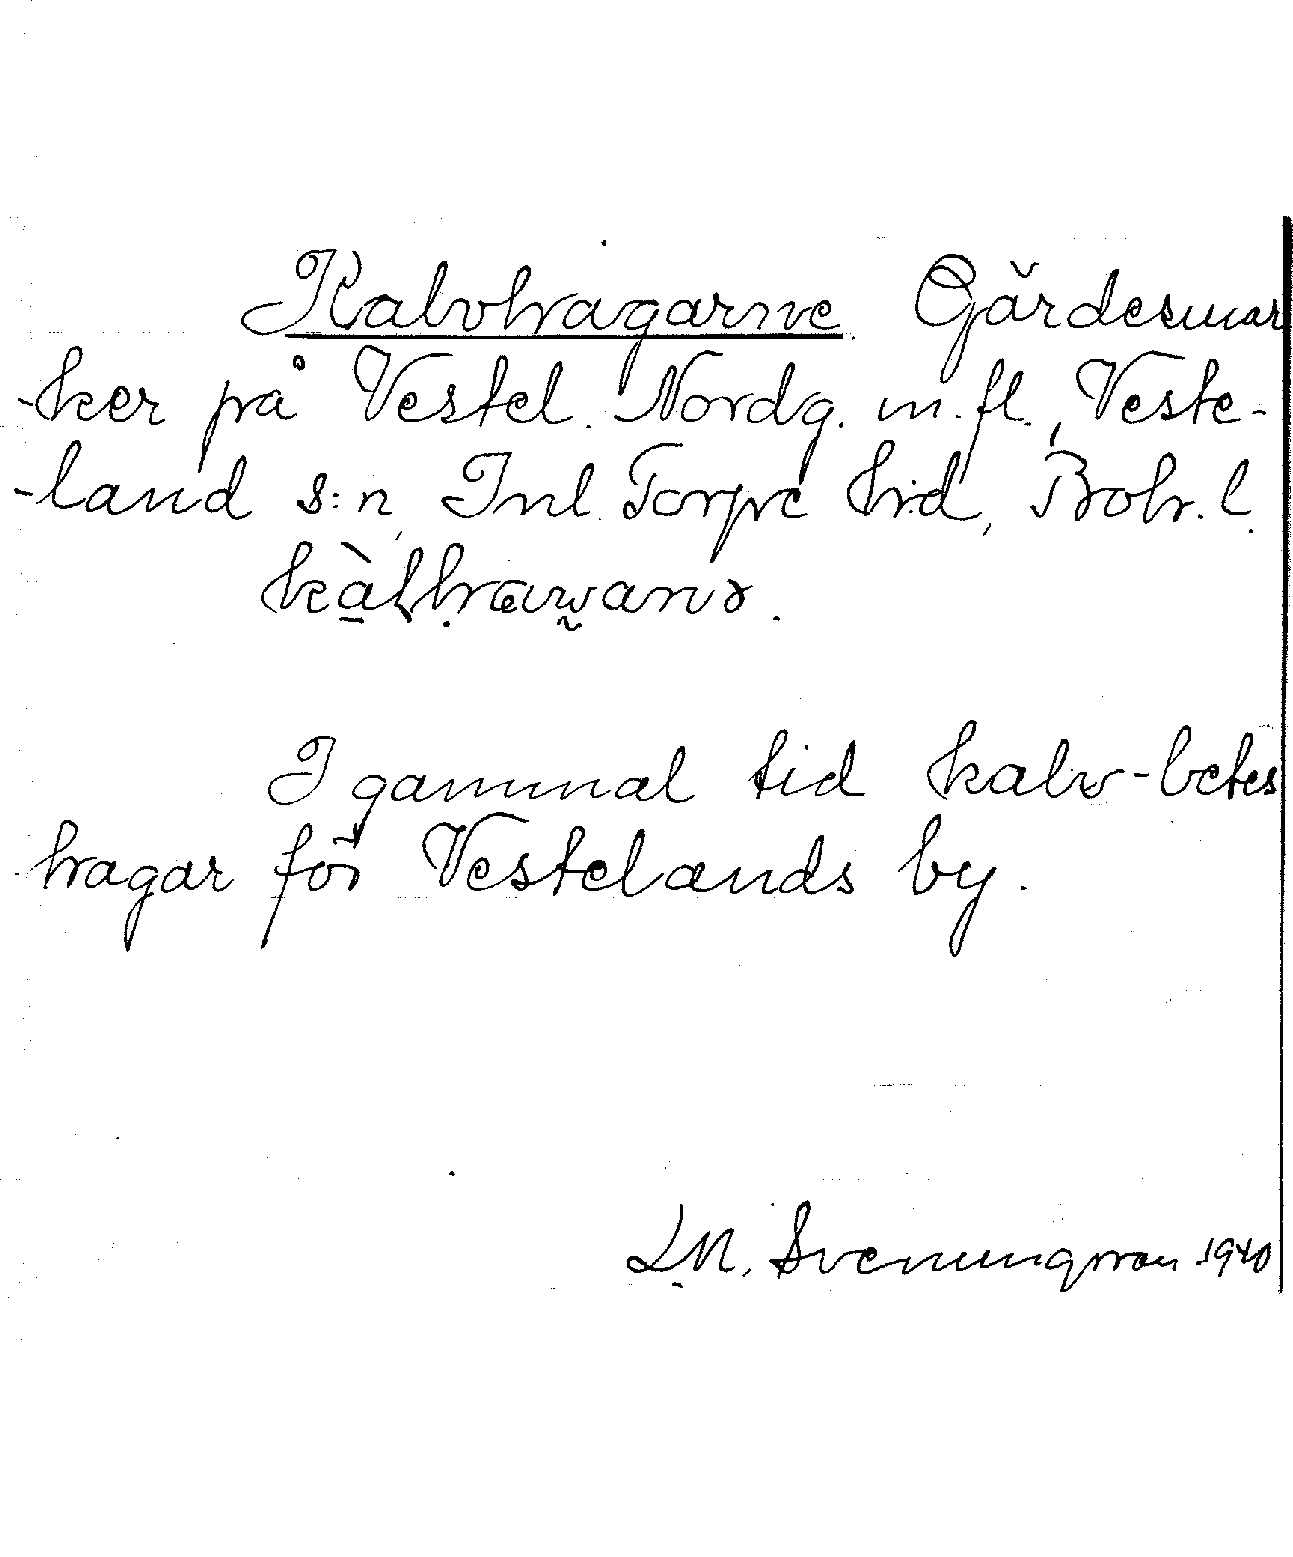 Kalvhagarne Gärdesmar
-ker på Vestel. Nordg. m.fl., Veste-
-land s:n, Inl. Torpe hd, Boh. l.

I gammal tid kalv-betes
hagar för Vestelands by.
L.M. Svenungsson 1940